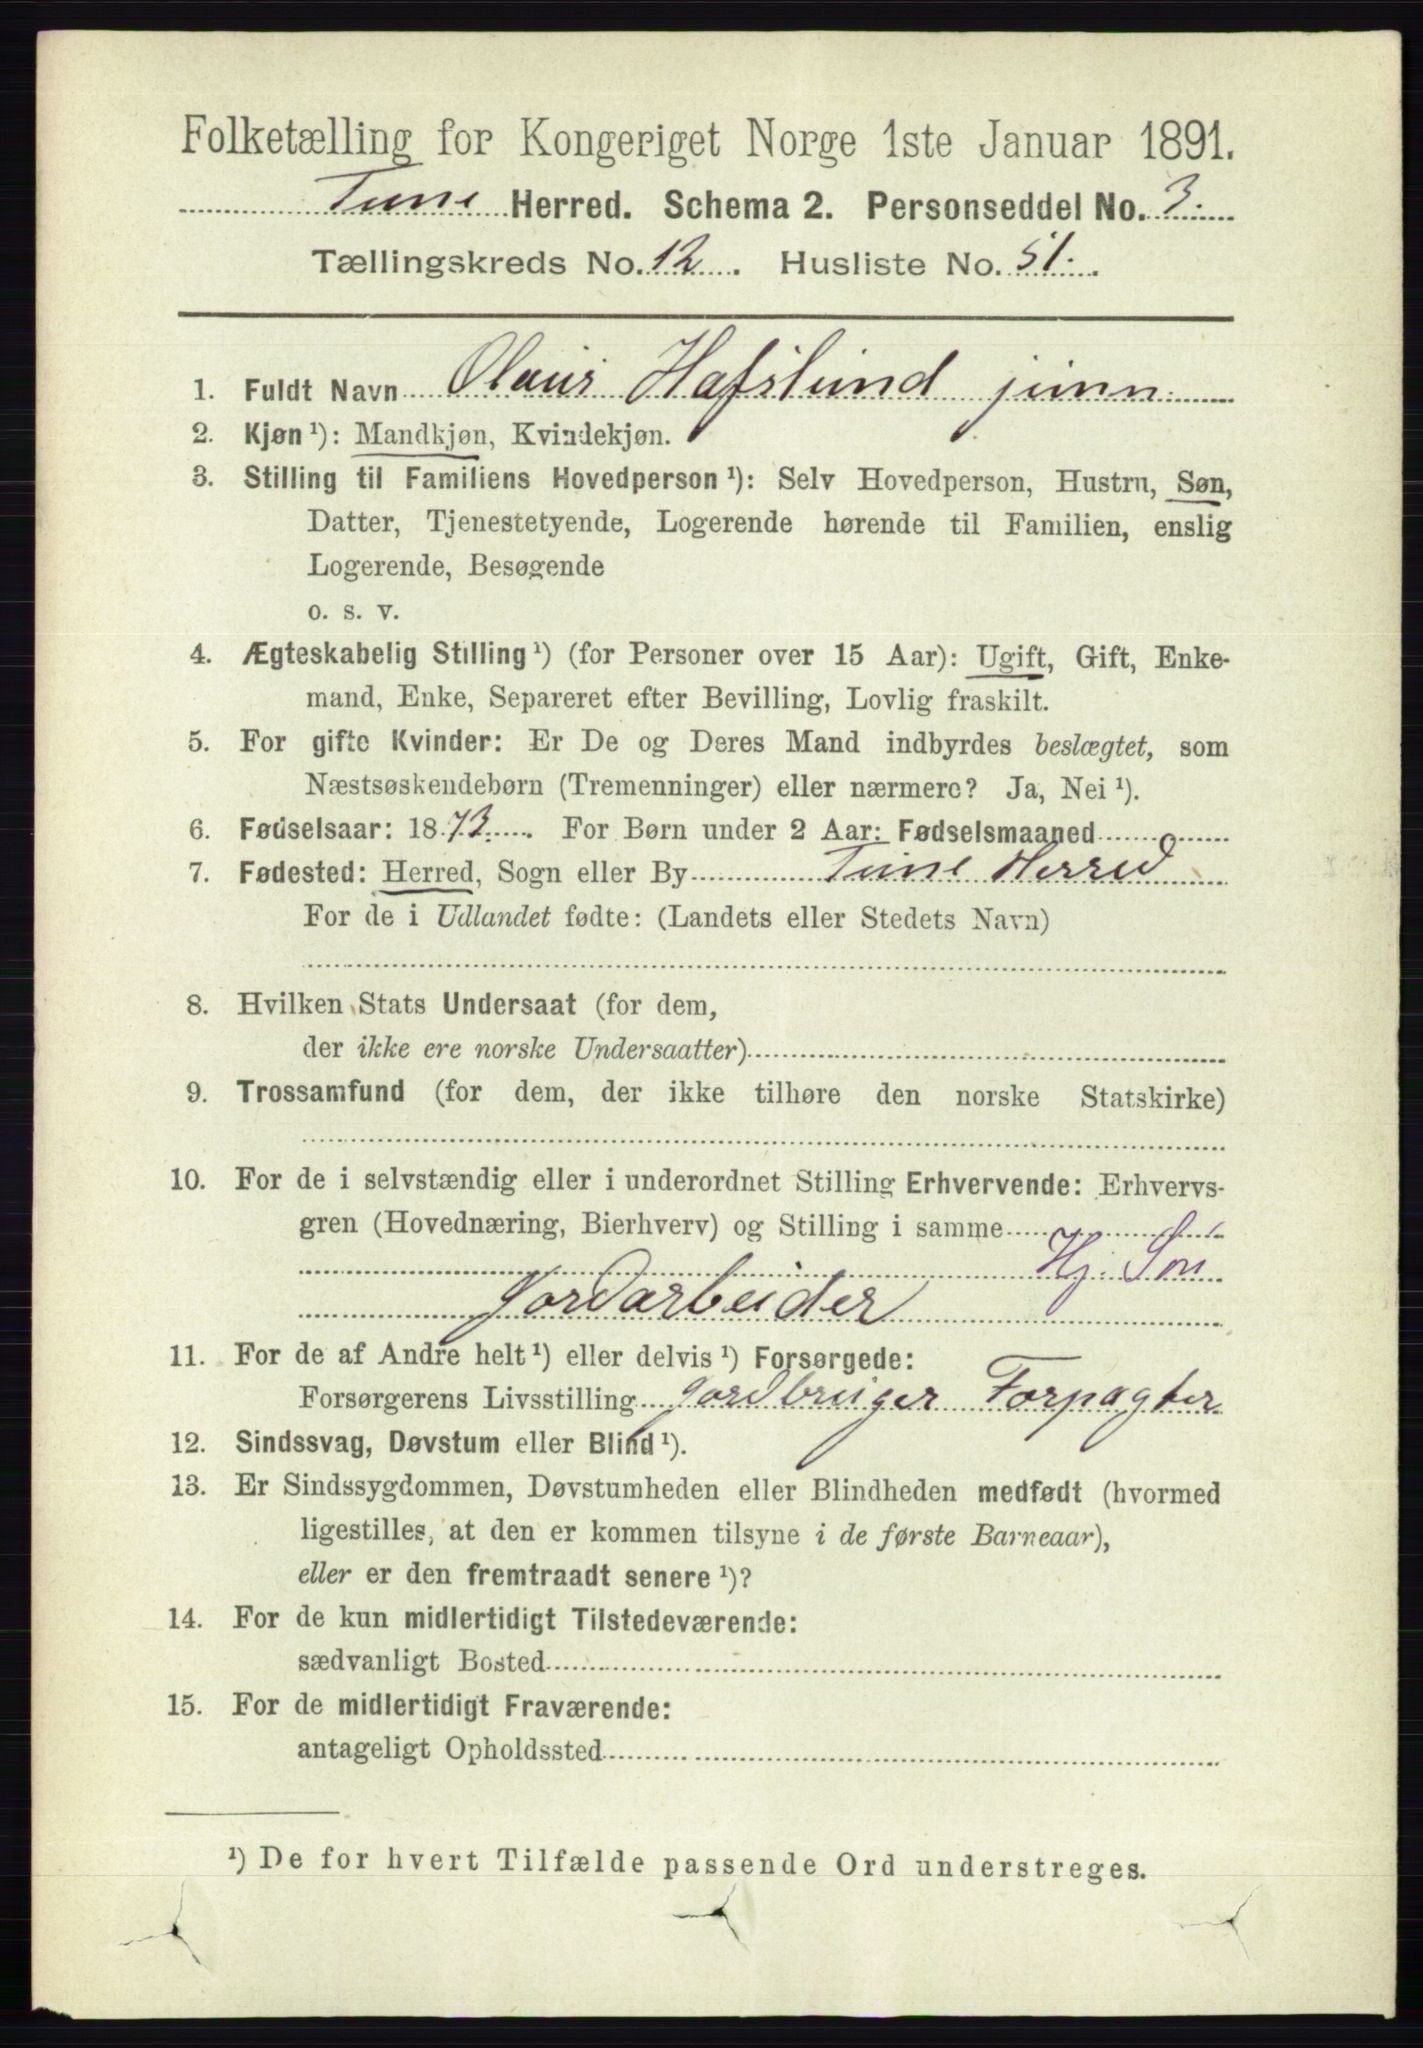 Folketælling for Kongeriget Norge 1ste Januar 1891.
Tune Herred. Schema 2. Personseddel No. 3.
Tællingskreds No. 12. Husliste No. 51.
1. Fuldt Navn Olaus Hafslund junr
2. Kjøn ¹): Mandkjøn, Kvindekjøn.
3. Stilling til Familiens Hovedperson ¹): Selv Hovedperson, Hustru, Søn,
Datter, Tjenestetyende, Logerende hørende til Familien, enslig
Logerende, Besøgende
o. s. v.
4. Ægteskabelig Stilling ¹) (for Personer over 15 Aar): Ugift, Gift, Enke-
mand, Enke, Separeret efter Bevilling, Lovlig fraskilt.
5. For gifte Kvinder: Er De og Deres Mand indbyrdes beslægtet, som
Næstsøskendebørn (Tremenninger) eller nærmere? Ja, Nei ¹).
6. Fødselsaar: 1873. For Børn under 2 Aar: Fødselsmaaned
7. Fødested: Herred, Sogn eller By Tune Herred
For de i Udlandet fødte: (Landets eller Stedets Navn)
8. Hvilken Stats Undersaat (for dem,
der ikke ere norske Undersaatter)
9. Trossamfund (for dem, der ikke tilhøre den norske Statskirke)
10. For de i selvstændig eller i underordnet Stilling Erhvervende: Erhvervs-
gren (Hovednæring, Bierhverv) og Stilling i samme
Hj. Søn
Jordarbeider
11. For de af Andre helt ¹) eller delvis ¹) Forsørgede:
Forsørgerens Livsstilling Jordbruger Forpagter
12. Sindssvag, Døvstum eller Blind ¹).
13. Er Sindssygdommen, Døvstumheden eller Blindheden medfødt (hvormed
ligestilles, at den er kommen tilsyne i de første Barneaar),
eller er den fremtraadt senere ¹)?
14. For de kun midlertidigt Tilstedeværende:
sædvanligt Bosted
15. For de midlertidigt Fraværende:
antageligt Opholdssted
¹) De for hvert Tilfælde passende Ord understreges.